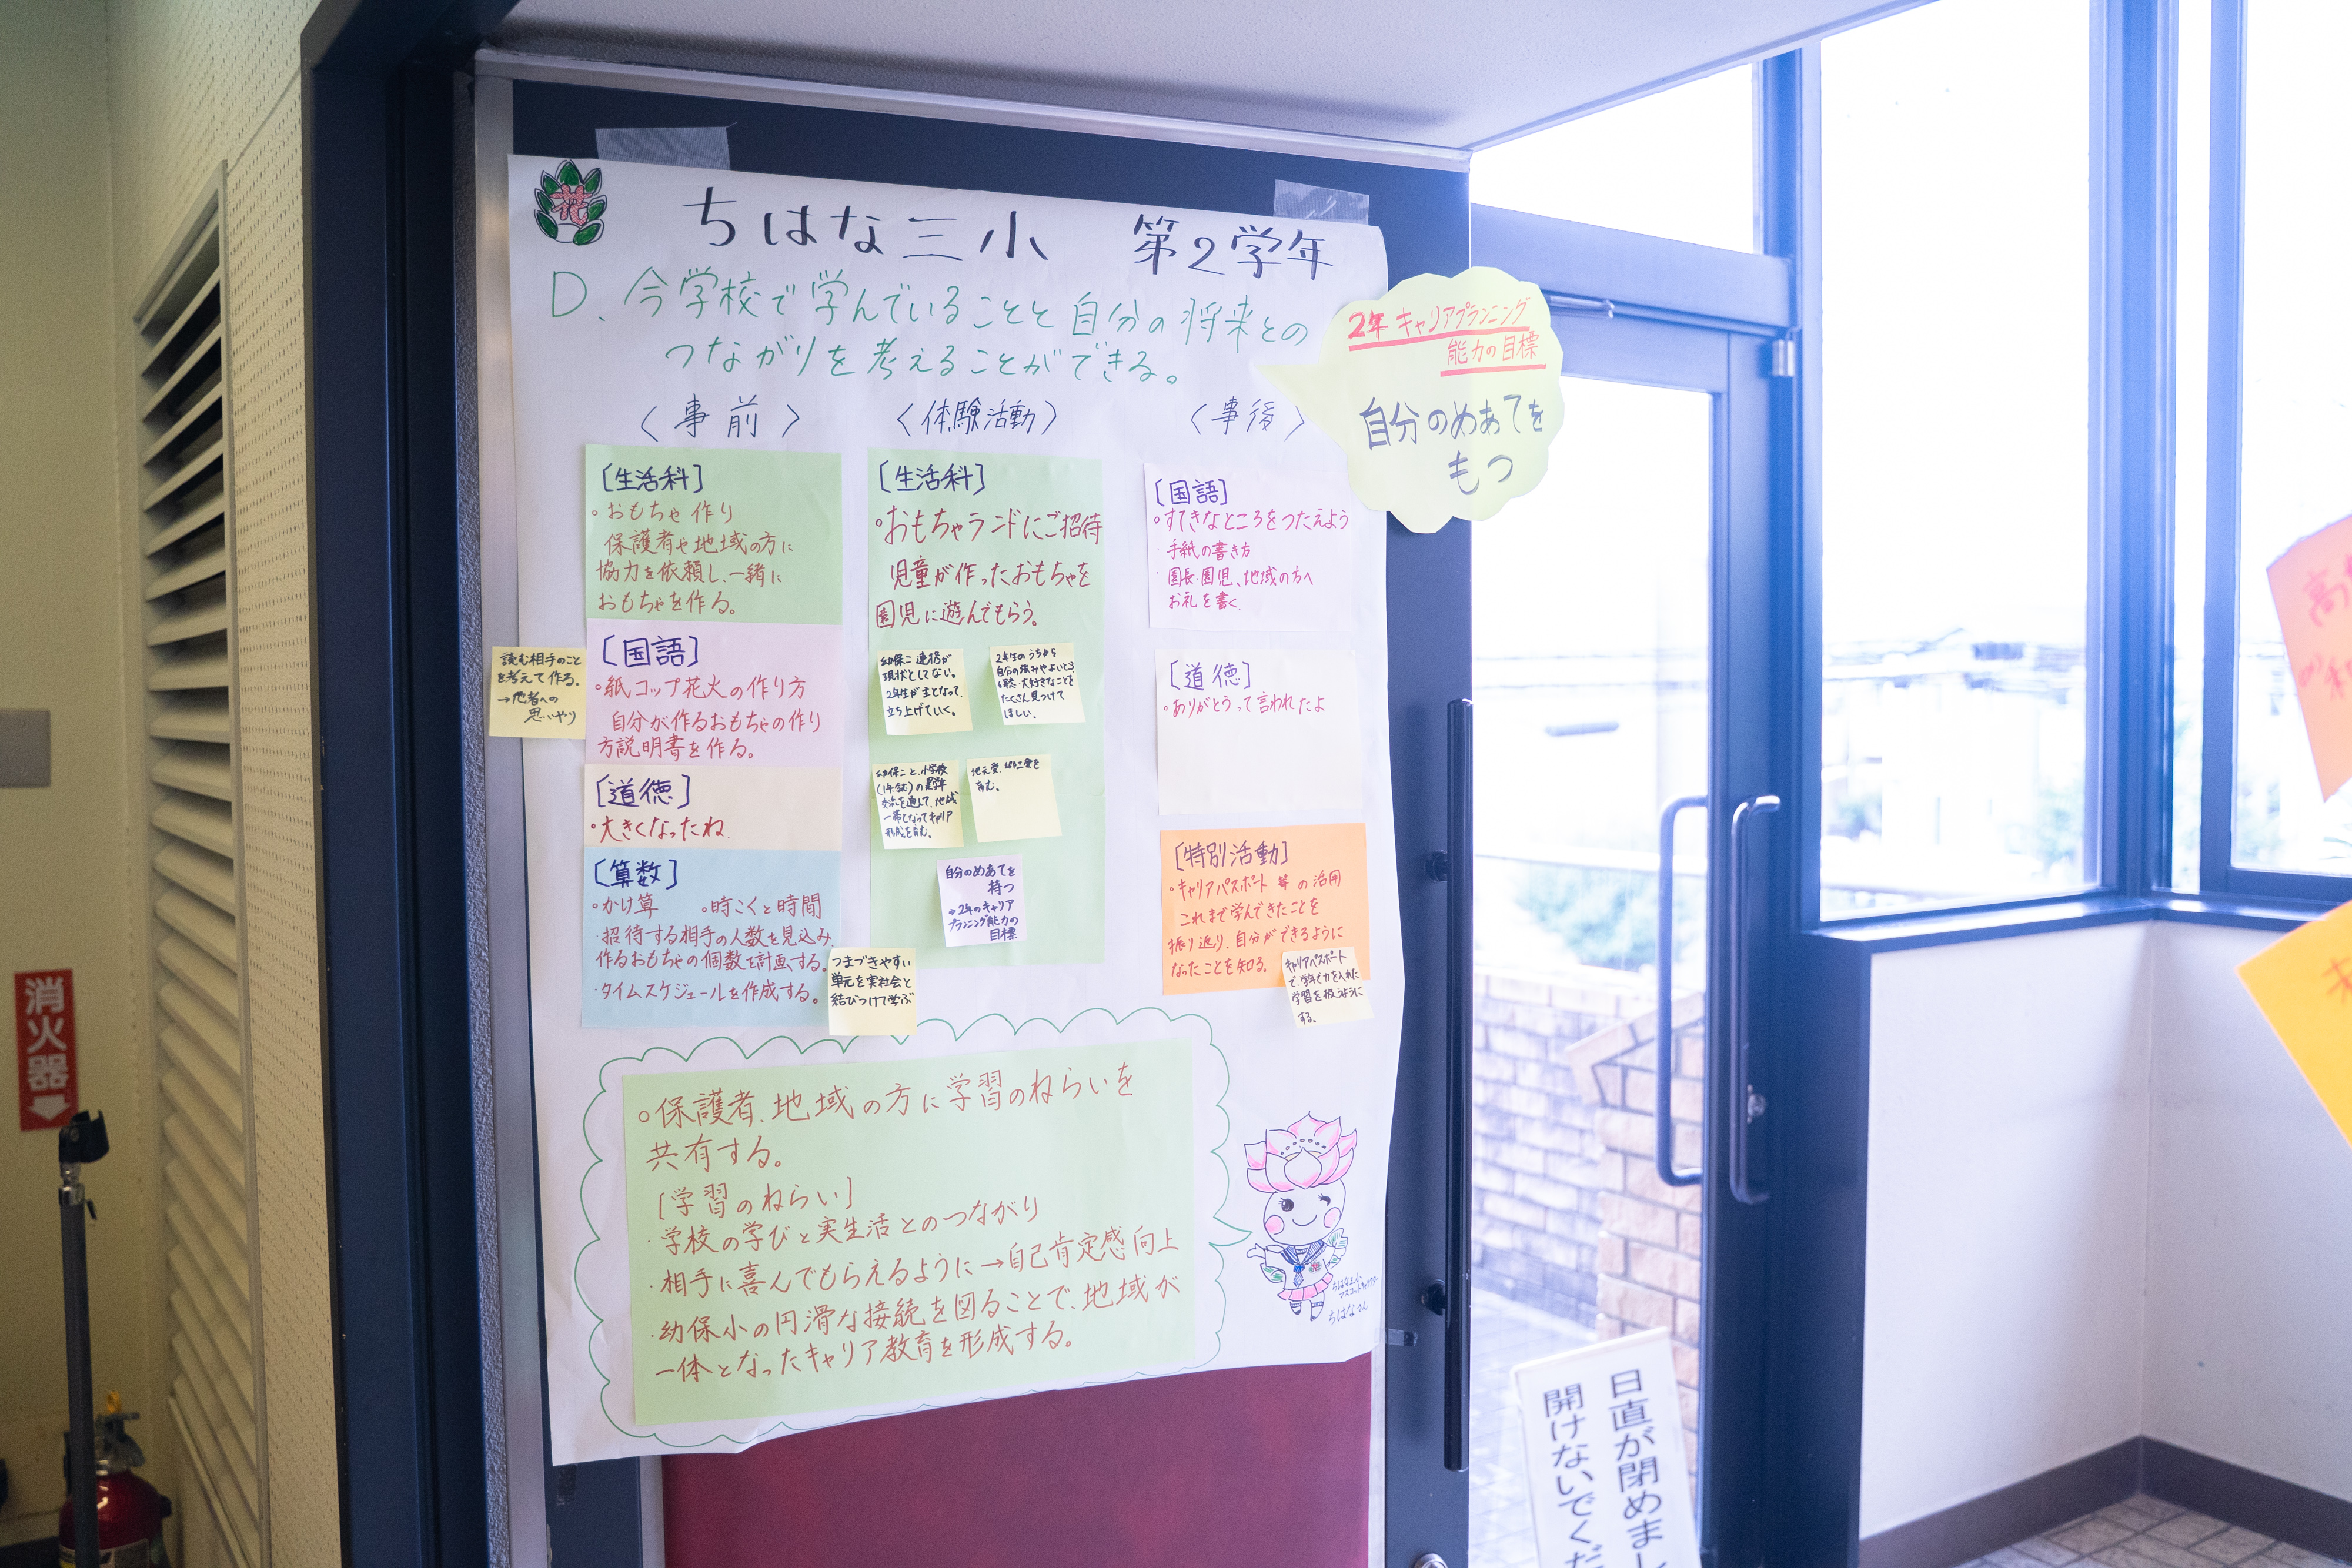 花
ちはな三小 第2学年
D. 今学校で学んでいることと自分の将来との
つながりを考えることができる。
2年 キャリアプランニング
能力の目標
自分のめあてを
もつ
〈事前〉
[生活科]
・おもちゃ作り
保護者や地域の方に
協力を依頼し、一緒に
おもちゃを作る。
[国語]
・紙コップ花火の作り方
自分が作るおもちゃの作り
方説明書を作る。
読む相手のこと
を考えて作る。
→他者への
思いやり
[道徳]
・大きくなったね
[算数]
・かけ算 ・時こくと時間
・招待する相手の人数を見込み、
作るおもちゃの個数を計画する。
・タイムスケジュールを作成する。
つまづきやすい
単元を実社会と
結びつけて学ぶ
〈体験活動〉
[生活科]
・おもちゃランドにご招待
児童が作ったおもちゃを
園児に遊んでもらう。
幼保こ連携が
現状としてない。
2年生が主となって、
立ち上げていく。
2年生のうちから
自分の強みやよいところ
大好きなことを
たくさん見つけて
ほしい。
幼保こと、小学校
交流を通して、地域
一帯となってキャリア
形成を育む。
育む。
自分のめあてを
持つ
⇒2年のキャリア
プランニング能力の
目標
〈事後〉
[国語]
・すてきなところをつたえよう
・手紙の書き方
・園長・園児、地域の方へ
お礼を書く。
[道徳]
・ありがとうって言われたよ
[特別活動]
・キャリアパスポート等の活用
これまで学んできたことを
振り返り、自分ができるように
なったことを知る。
キャリアパスポート
で、学年で力を入れた
学習を扱うように
する。
○保護者、地域の方に学習のねらいを
共有する。
[学習のねらい]
・学校の学びと実生活とのつながり
・相手に喜んでもらえるように→自己肯定感向上
・幼保小の円滑な接続を図ることで、地域が
一体となったキャリア教育を形成する。
ちはな三小
マスコットキャラクター
ちはなさん
消火器
日直が閉めまし
開けないでくだ